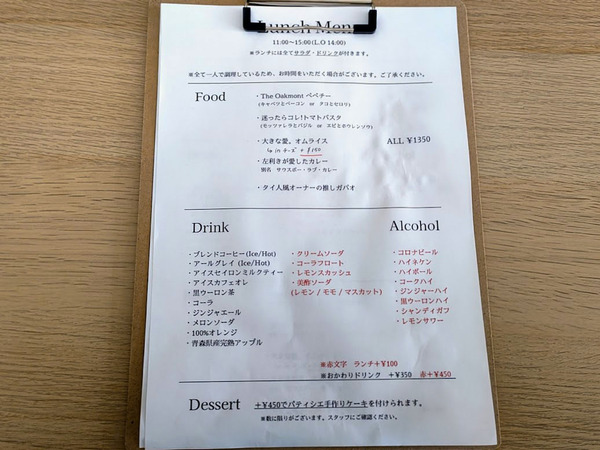 Lunch Menu
11:00～15:00(L.O 14:00)
※ランチには全てサラダ・ドリンクが付きます。
※全て一人で調理しているため、お時間をいただく場合がございます。ご了承ください。
Food
・The Oakmont ペペチー
(キャベツとベーコン or タコとセロリ)
・迷ったらコレ!トマトパスタ
(モッツァレラとバジル or エビとホウレンソウ)
・大きな愛。オムライス
↳ in チーズ +¥150
ALL ¥1350
・左利きが愛したカレー
別名 サウスポー・ラブ・カレー
・タイ人風オーナーの推しガパオ
Drink
・ブレンドコーヒー(Ice/Hot)
・アールグレイ (Ice/Hot)
・アイスセイロンミルクティー
・アイスカフェオレ
・黒ウーロン茶
・コーラ
・ジンジャエール
・メロンソーダ
・100%オレンジ
・青森県産完熟アップル
・クリームソーダ
・コーラフロート
・レモンスカッシュ
・美酢ソーダ
(レモン / モモ / マスカット)
Alcohol
・コロナビール
・ハイネケン
・ハイボール
・コークハイ
・ジンジャーハイ
・黒ウーロンハイ
・シャンディガフ
・レモンサワー
※赤文字 ランチ＋¥100
※おかわりドリンク ＋¥350 赤＋¥450
Dessert
＋¥450でパティシエ手作りケーキを付けられます。
※数に限りがございます。スタッフにご確認ください。